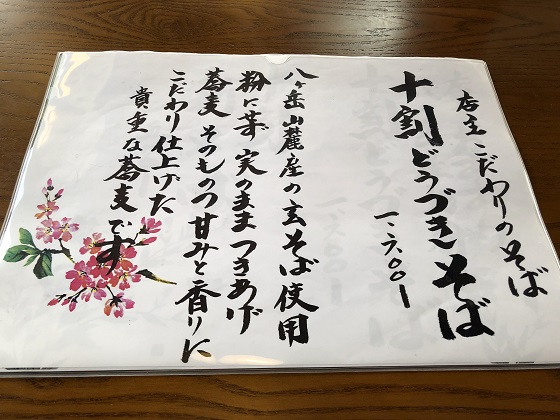 店主こだわりのそば
十割どうづきそば
一、六〇〇一
八ヶ岳山麓産の玄そば使用
粉に挽ず実のままつきあげ
蕎麦そのものの甘みと香りに
こだわり仕上げた
貴重な蕎麦です